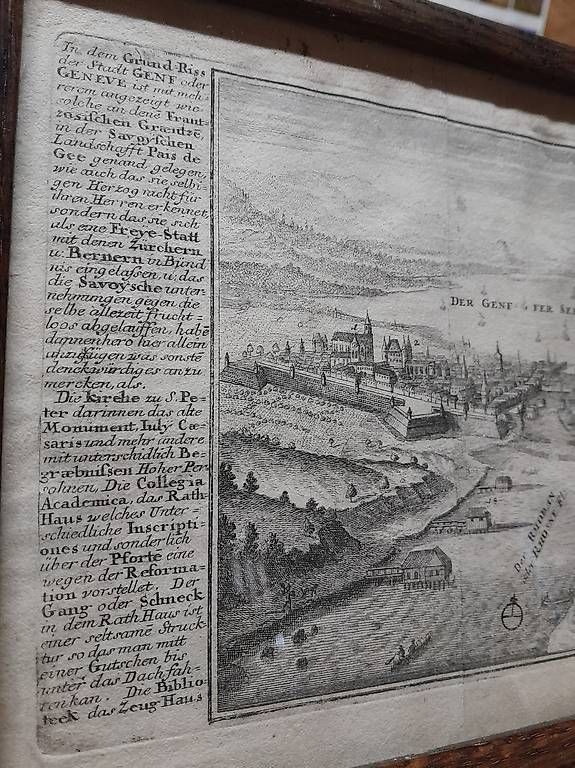 In dem Grund-Riss
der Stadt GENF oder
GENEVE ist mit meh-
rerem angezeigt wie
solche an denē Frant-
zösischen Graentzē,
in der Savoÿschen
Landschafft Pais de
Gee genand, gelegen,
wie auch das sie selbi-
gen Herzog nicht für
ihren Herren erkennet,
sondern das sie sich
als eine Freye-Statt
mit denen Zürchern
u. Bernern in Bünd
nis eingelassen, u. das
die Savoÿsche unter-
nehmungen gegen die
selbe allezeit frucht-
loos abgelauffen, habē
dannenhero hier allein
anzufügen was sonstē
denckwürdiges an zu
mercken, als.
Die Kirche zu S. Pe-
ter darinnen das alte
Monument, July Cæ-
saris und mehr andere
mit unterschidlich Be-
græbnissen Hoher Per
sohnen, Die Collegia
Academica, das Rath
Haus welches Unter-
schiedliche Inscripti-
ones und sonderlich
über der Pforte eine
wegen der Reforma-
tion vorstellet. Der
Gang oder Schneck
in dem Rath Haus ist
einer seltsamē Struck-
tur so das man mitt
einer Gutschen bis
unter das Dach fah-
ren kan. Die Biblio-
teck das Zeug-Haus
DER GENF FER SEE
DER RHODAN